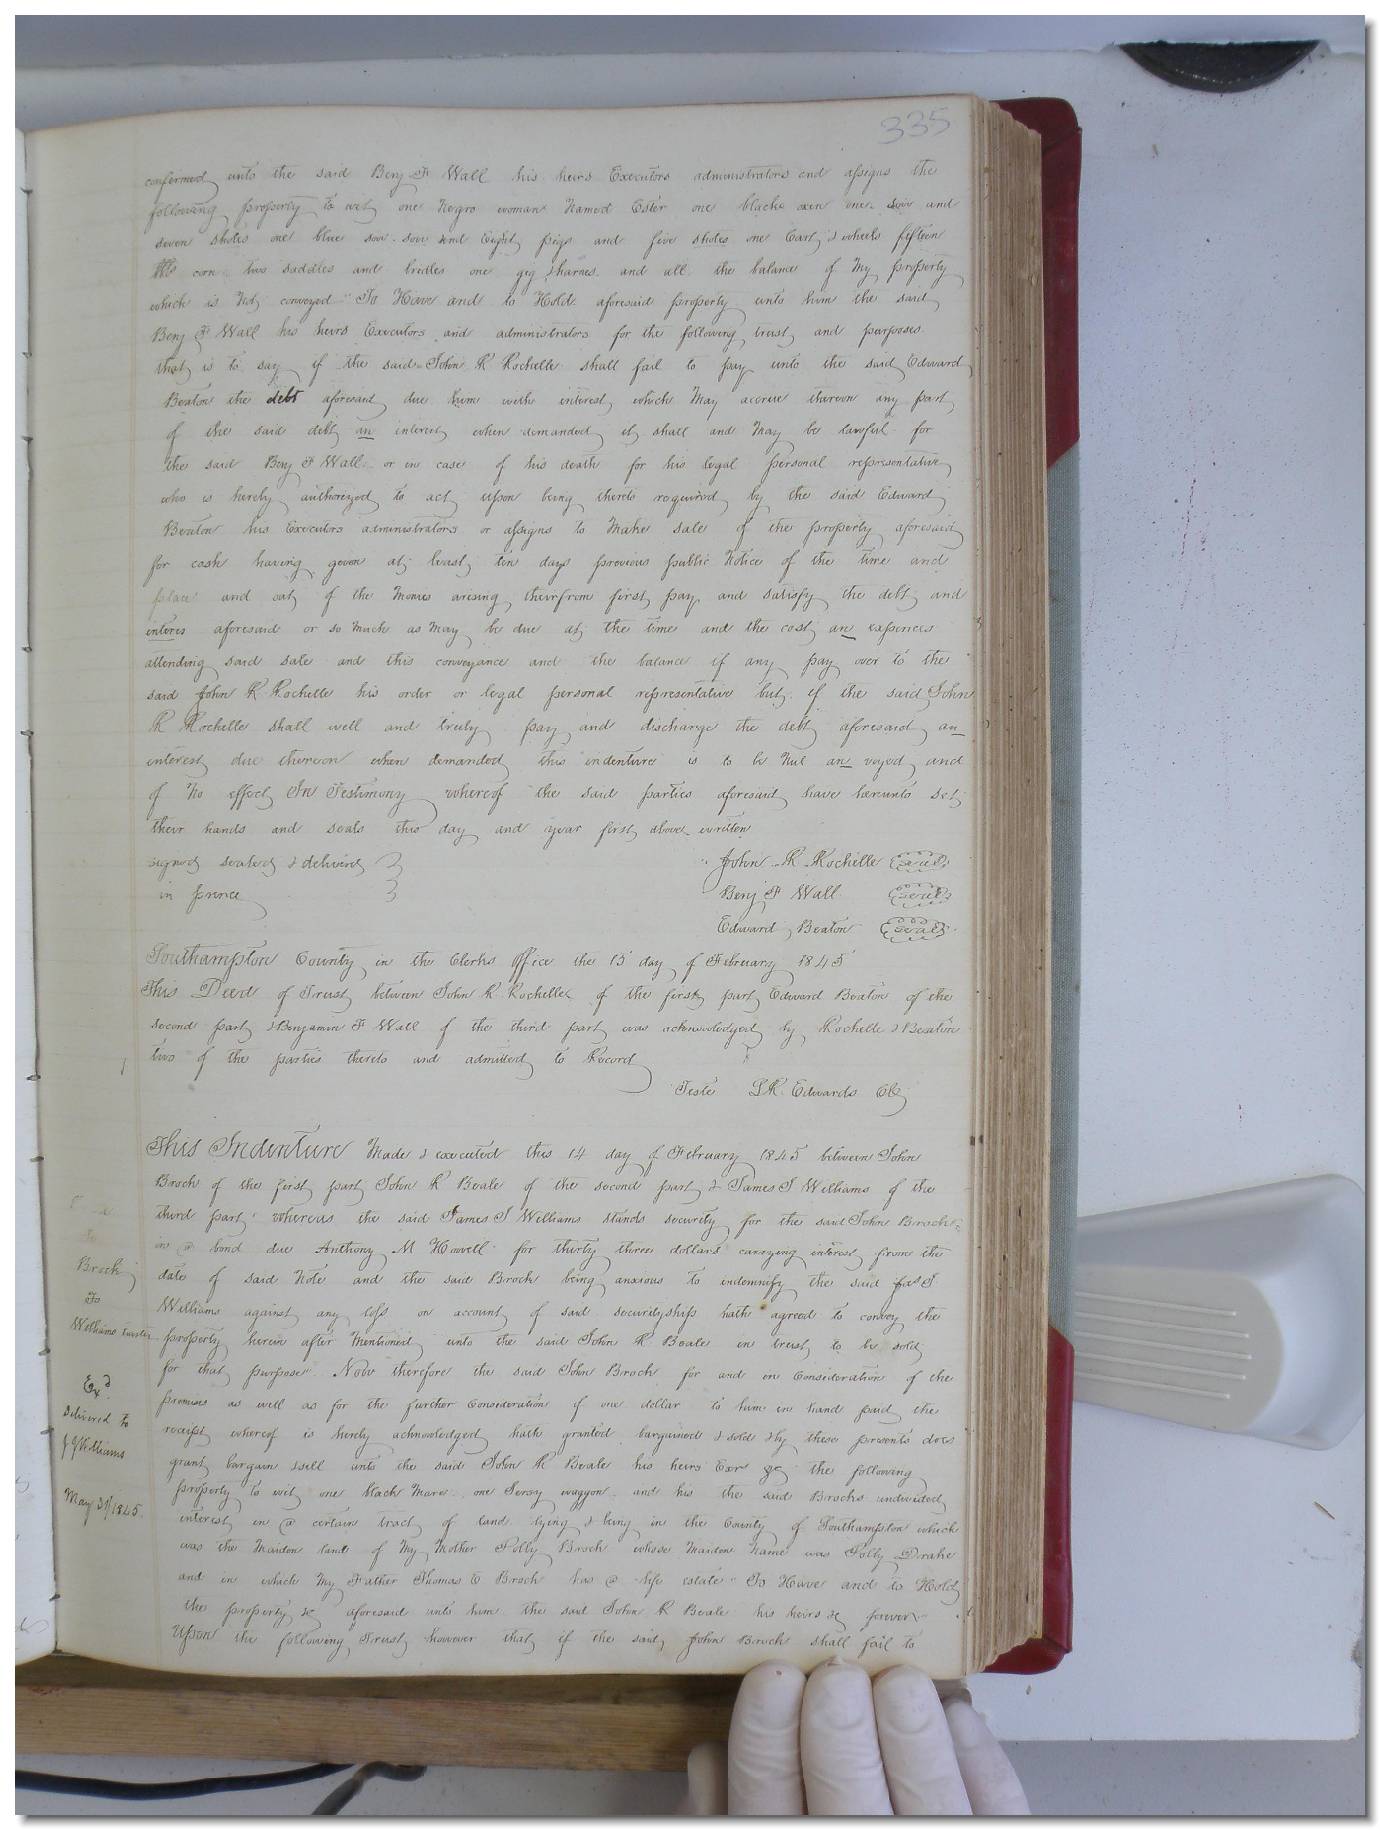 335
confirmed unto the said Benj F Wall his heirs Executors administrators and assigns the
following property to wit one Negro woman Named Ester one blacke oxen one sow and
seven shotes one blue sow sow and Eight pigs and five shotes one Cart & wheels fifteen
corn two saddles and bridles one gig & harnes and all the balance of My property
which is Not conveyed "To Have and to Hold aforesaid property unto him the said
Benj F Wall his heirs Executors and administrators for the following trust and purposes
that is to say if the said John R Rochelle shall fail to pay unto the said Edward
Beaton the debt aforesaid due him with interest which May accrue thereon any part
of the said debt an interest when demanded it shall and May be lawful for
the said Benj F Wall or in case of his death for his legal personal representative
who is hereby authorized to act upon being thereto required by the said Edward
Beaton his Executors administrators or assigns to Make sale of the property aforesaid
for cash having given at least ten days previous public Notice of the time and
place and out of the Monies arising theirfrom first pay and satisfy the debt and
interes aforesaid or so Much as May be due at the time and the cost an expences
attending said sale and this conveyance and the balance if any pay over to the
said John R Rochelle his order or legal personal representative but if the said John
R Rochelle shall well and truly pay and discharge the debt aforesaid an
interest due thereon when demanded this indenture is to be Nul an voyed and
of No effect In Testimony whereof the said parties aforesaid have hereunto set
their hands and seals this day and year first above written
signed sealed & deliverd John R Rochelle seal
in prence Benj F Wall seal
Edward Beaton seal
Southampton County in the Clerks office the 15 day of February 1845
This Deed of Trust between John R Rochelle of the first part Edward Beaton of the
second part & Benjamin F Wall of the third part was acknowledged by Rochelle & Beaton
two of the parties thereto and admitted to Record
Teste LR Edwards Clk
This Indenture Made & executed this 14 day of February 1845 between John
Broch of the first part John R Beale of the second part & James J Williams of the
third part whereas the said James J Williams stands security for the said John Broch
in a bond due Anthony M Howell for thirty three dollars carrying interest from the
date of said Note and the said Broch being anxious to indemnify the said Jas J
Williams against any loss on account of said securityship hath agreed to convey the
property herein after Mentioned unto the said John R Beale in trust to be sold
for that purpose" Now therefore the said John Broch for and in Consideration of the
premises as well as for the further Consideration of one dollar to him in hand paid the
receipt whereof is hereby acknowledged hath granted bargained & sold & by these presents does
grant bargain & sell unto the said John R Beale his heirs Exor &c the following
property to wit one black Mare one Jersy waggon and his the said Brochs undivided
interest in a certain tract of land lying & being in the County of Southampton which
was the Maiden land of My Mother Polly Broch whose Maiden Name was Polly Drake
and in which My Father Thomas E Broch has a life estate" To Have and to Hold
the property &c aforesaid unto him the said John R Beale his heirs &c forever
Upon the following Trust however that if the said John Broch shall fail to
Broch
To
Williams trustee
Exd
Delivered to
J J Williams
May 31st 1845.